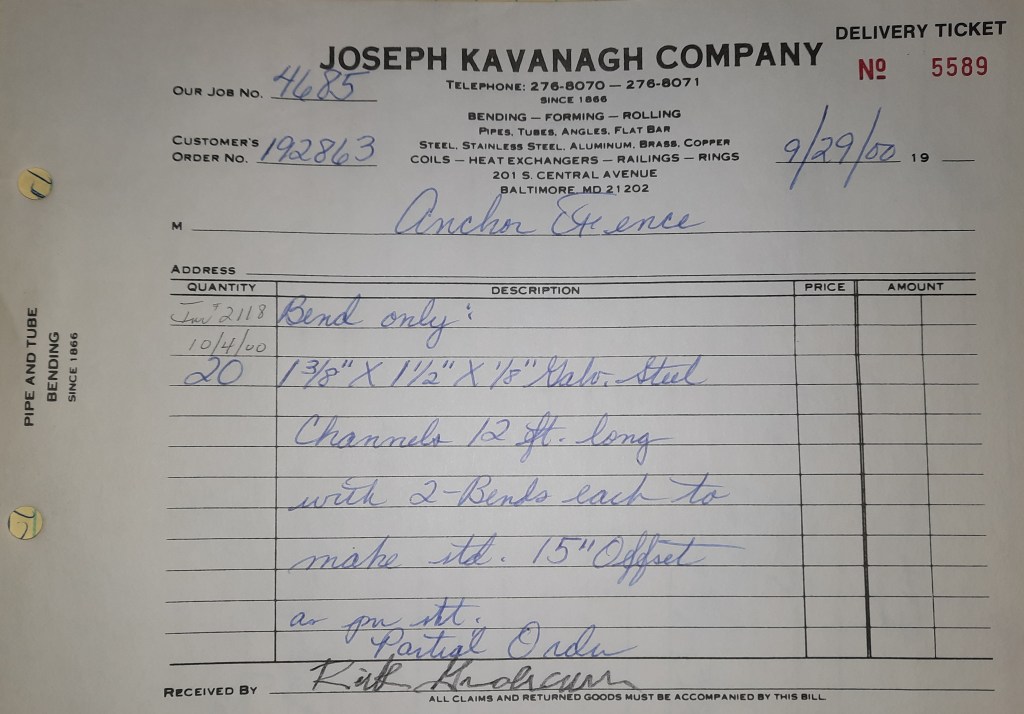 DELIVERY TICKET
JOSEPH KAVANAGH COMPANY
No 5589
OUR JOB NO. 4685
TELEPHONE: 276-8070 — 276-8071
SINCE 1866
BENDING — FORMING — ROLLING
PIPES, TUBES, ANGLES, FLAT BAR
CUSTOMER'S ORDER NO. 192863
STEEL, STAINLESS STEEL, ALUMINUM, BRASS, COPPER
COILS — HEAT EXCHANGERS — RAILINGS — RINGS
9/29/00 19
201 S. CENTRAL AVENUE
BALTIMORE, MD 21202
M Anchor Fence
ADDRESS
QUANTITY DESCRIPTION PRICE AMOUNT
Inv # 2118 Bend only:
10/4/00
20 1 3/8" X 1 1/2" X 1/8" Galv. Steel
Channels 12 ft. long
with 2-Bends each to
make std. 15" Offset
as per skt.
Partial Order
RECEIVED BY
ALL CLAIMS AND RETURNED GOODS MUST BE ACCOMPANIED BY THIS BILL
PIPE AND TUBE
BENDING
SINCE 1866